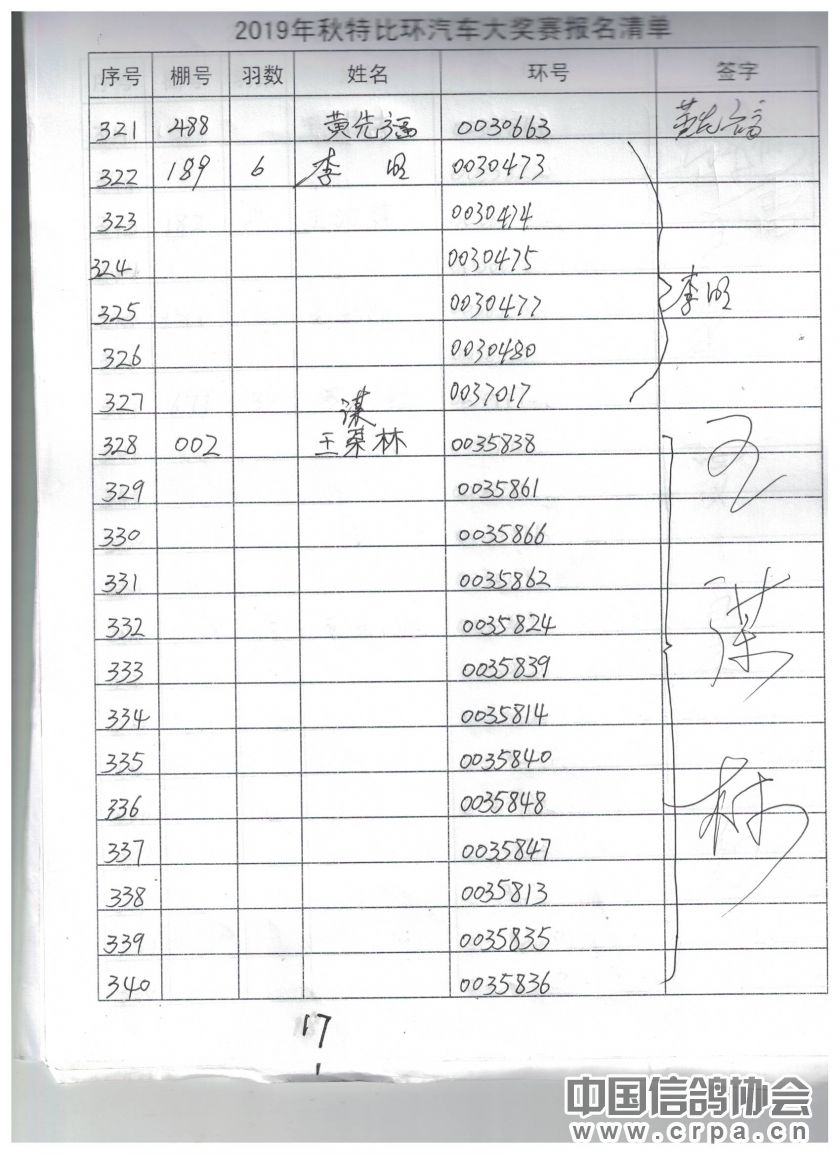 2019年秋特比环汽车大奖赛报名清单
序号 棚号 羽数 姓名 环号 签字
321 488 黄先福 0030663 黄先福
322 189 6 李明 0030473
323 0030474
324 0030475
325 0030477 李明
326 0030480
327 0037017
谋
328 002 王某林 0035838 王
329 0035861
330 0035866
331 0035862
332 0035824 谋
333 0035839
334 0035814
335 0035840
336 0035848 林
337 0035847
338 0035813
339 0035835
340 0035836
17
中国信鸽协会
www.crpa.cn